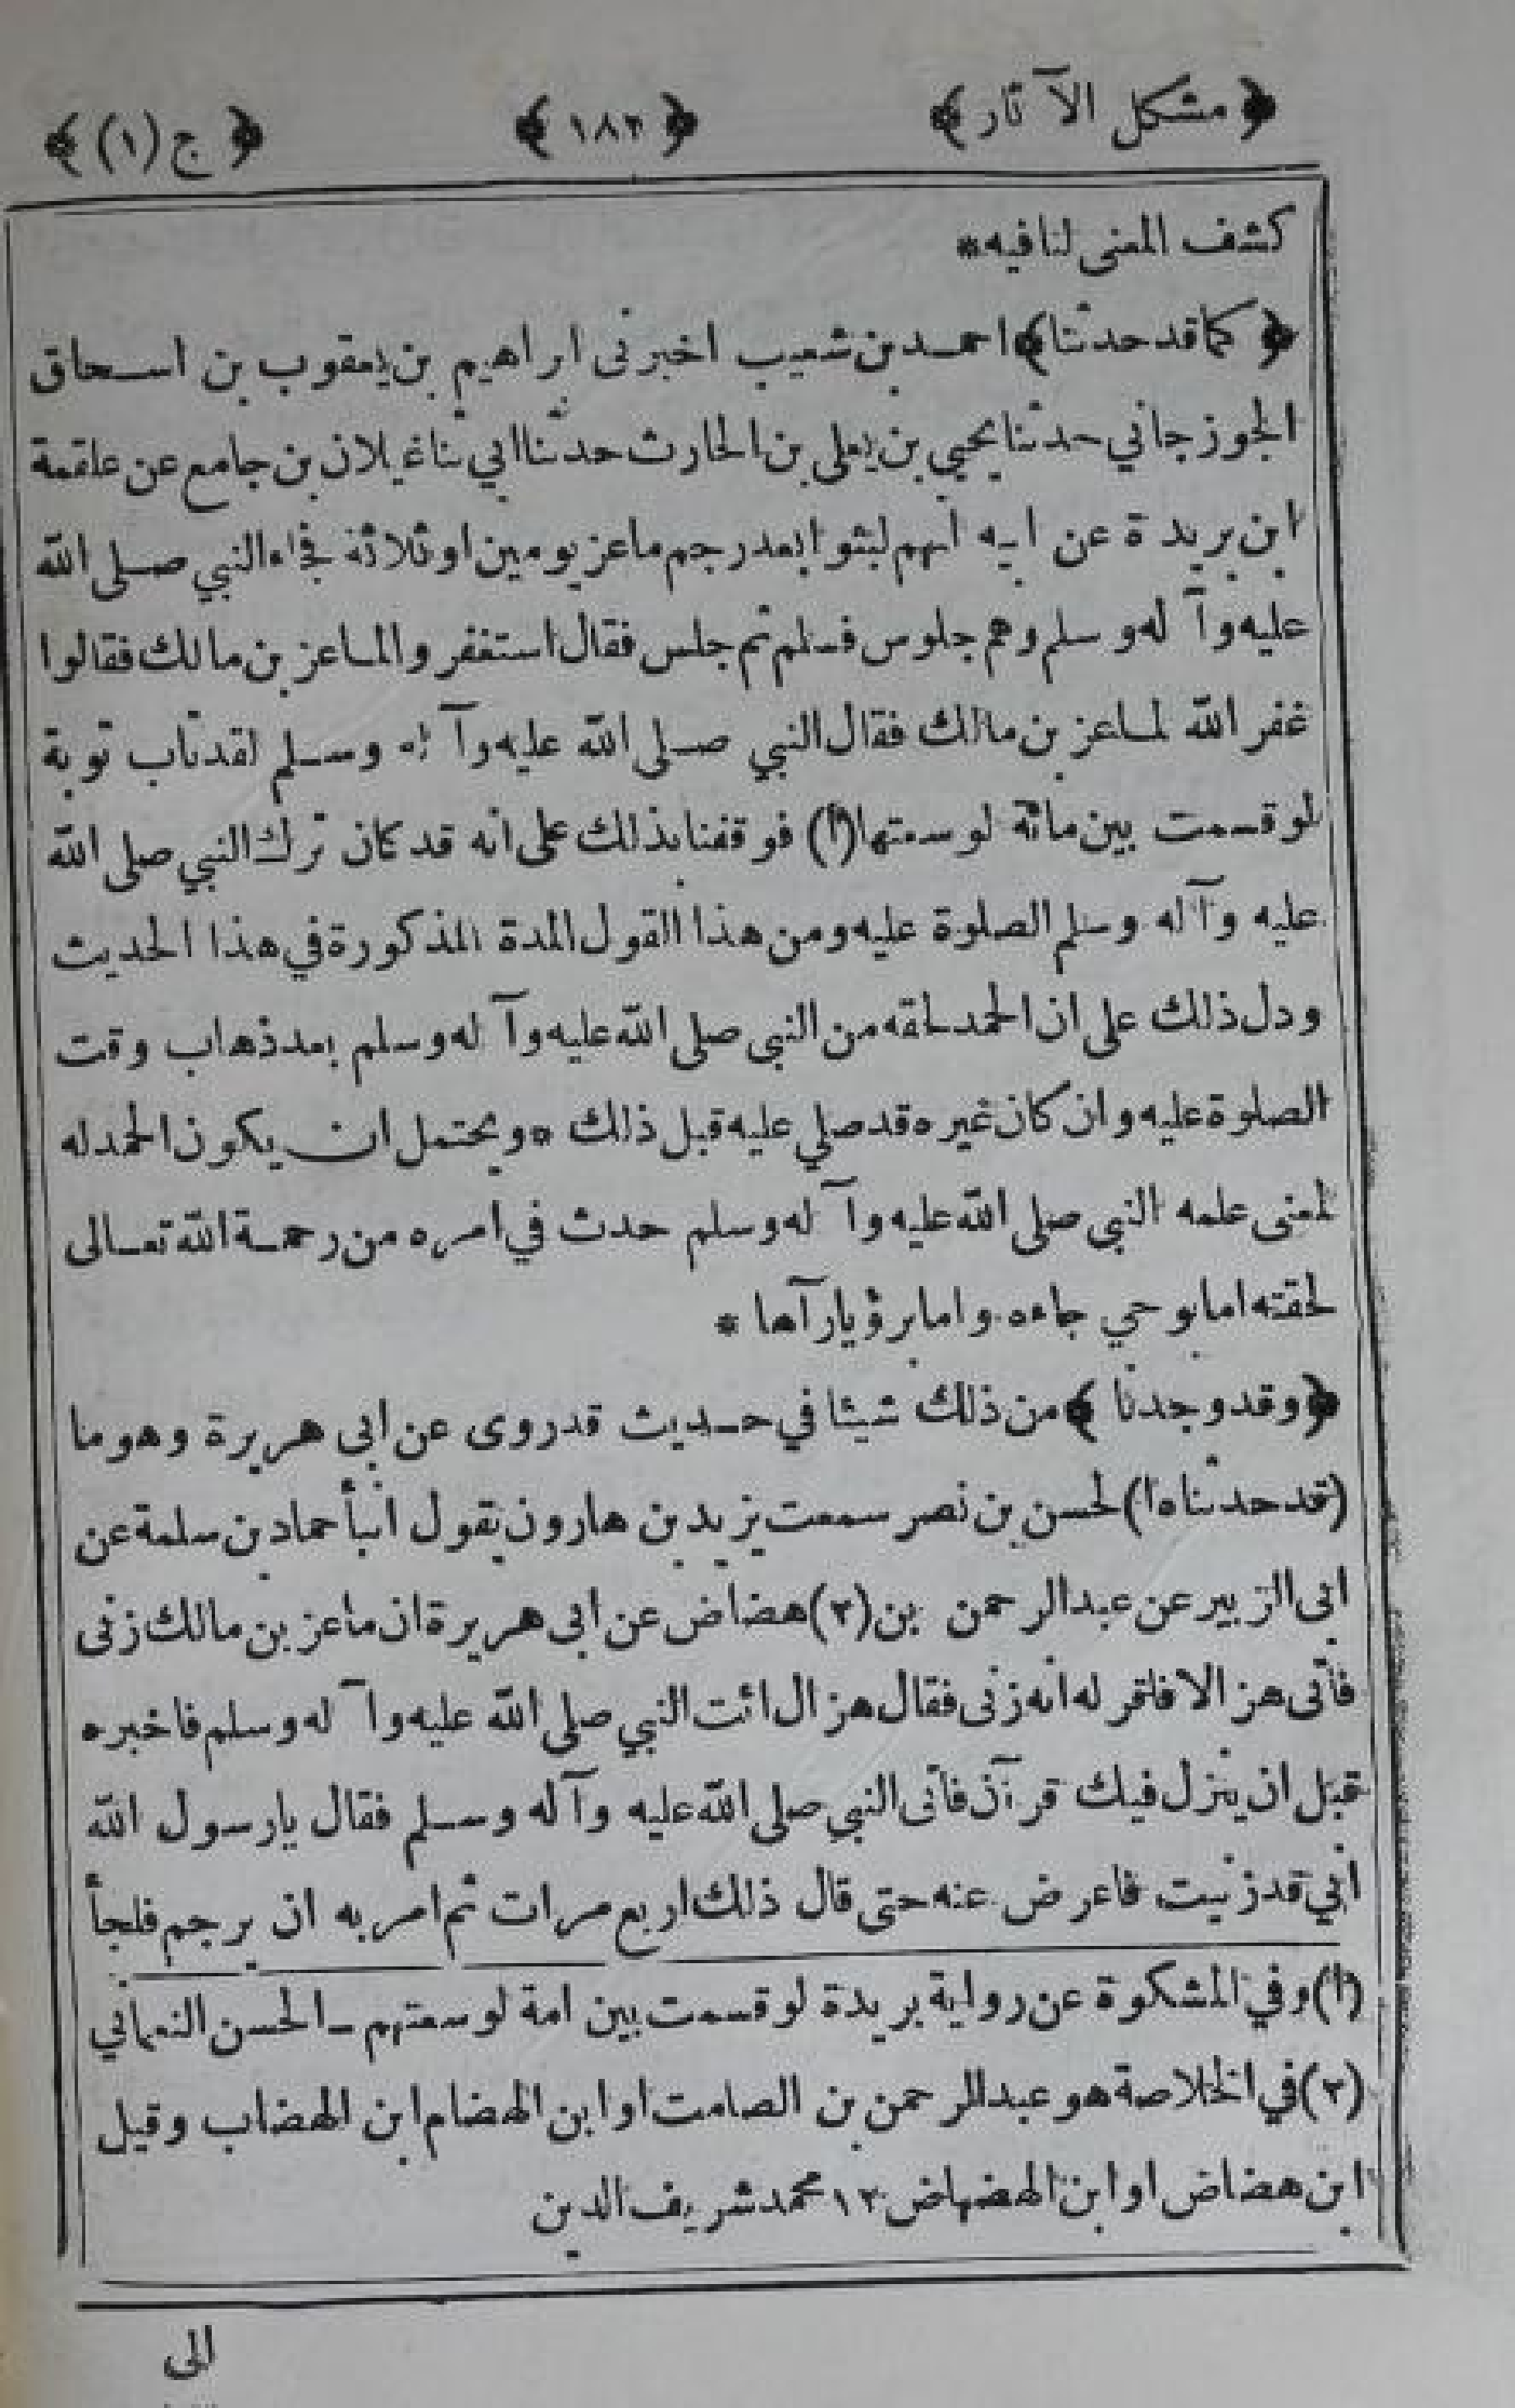 ﴿مشكل الآثار﴾ ﴿١٨٢﴾ ﴿ج (١)﴾
كشف المعنى لنا فيه *
﴿كما قد حدثنا﴾ احمد بن شعيب اخبرنى ابراهيم بن يعقوب بن اسحاق
الجوزجاني حدثنا يحيى بن يعلى بن الحارث حدثنا ابي ثنا غيلان بن جامع عن علقمة
ابن بريدة عن ابيه انهم لبثوا بعد رجم ماعز يومين او ثلاثة فجاء النبي صلى الله
عليه وآله وسلم وهم جلوس فسلم ثم جلس فقال استغفر والماعز بن مالك فقالوا
غفر الله لماعز بن مالك فقال النبي صلى الله عليه وآله وسلم لقد تاب توبة
لو قسمت بين مائة لوسعتها (١) فوقفنا بذلك على انه قد كان ترك النبي صلى الله
عليه وآله وسلم الصلوة عليه ومن هذا القول المدة المذكورة في هذا الحديث
ودل ذلك على ان الحمد لحقه من النبى صلى الله عليه وآله وسلم بعد ذهاب وقت
الصلوة عليه وان كان غيره قد صلي عليه قبل ذلك * ويحتمل ان يكون الحمد له
لمعنى علمه النبى صلى الله عليه وآله وسلم حدث في امره من رحمة الله تعالى
لحقته اما بوحي جاءه واما برؤيا رآها *
﴿وقد وجدنا﴾ من ذلك شيئا في حديث قد روى عن ابى هريرة وهو ما
(قد حدثناه ا) لحسن بن نصر سمعت يزيد بن هارون يقول انبأ حماد بن سلمة عن
ابى الزبير عن عبد الرحمن بن (٢) هضاض عن ابى هريرة ان ماعز بن مالك زنى
فأتى هزالا فاقر له انه زنى فقال هزال ائت النبي صلى الله عليه وآله وسلم فاخبره
قبل ان ينزل فيك قرآن فأتى النبي صلى الله عليه وآله وسلم فقال يا رسول الله
انى قد زنيت فاعرض عنه حتى قال ذلك اربع مرات ثم امر به ان يرجم فلجأ
(١) وفي المشكوة عن رواية بريدة لو قسمت بين امة لوسعتهم ـ الحسن النعماني
(٢) في الخلاصة هو عبد الرحمن بن الصامت او ابن الهضام ابن الهضاب وقيل
ابن هضاض او ابن الهضهاض ١٢ محمد شريف الدين
الى